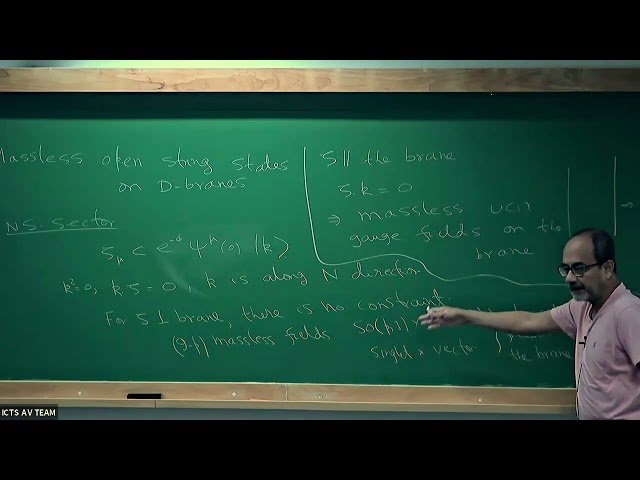 Massless open string states
on D-branes
NS. Sector
ζμ c e^-φ ψ^μ(0) |k⟩
k²=0, k.ζ = 0, k is along N direction
For ζ ⊥ brane, there is no constraint.
(9-p) massless fields SO(p,1)
singlet × vector
the brane
ζ || the brane
ζ.k = 0
⇒ massless U(1)
gauge fields on the
brane
ICTS AV TEAM